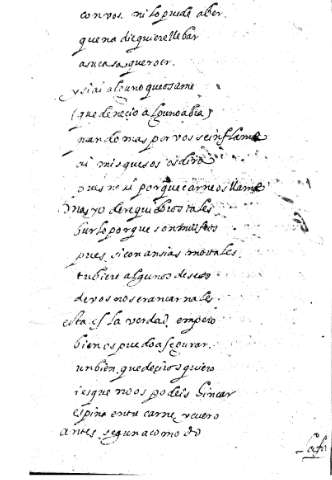 con vos ni lo puede aber
que nadie quiere llebar
a su casa que roer.
y si ai alguno que os ame
(que de necio alguno abia)
quando mas por vos se inflame
ni mis quesos os dira
pues ni porque carne os llame
mas yo de requiebros tales
burlo porque son
pues si con ansias mortales
tubiere algunos deseo
de vos no seran carnales.
esta es la verdad empero
bien os puedo asegurar
un bien que deciros quiero
i es que no os podeis hincar
espina entre carne y cuero
antes segun acomodo